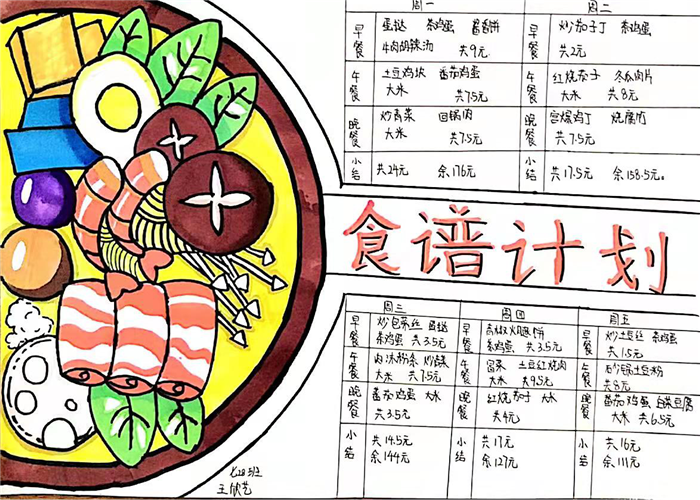 周一
周二
早餐
蛋挞 茶鸡蛋 酱香饼
牛肉胡辣汤 共9元
早餐
炒茄子丁 茶鸡蛋
共2元
午餐
土豆鸡块 番茄鸡蛋
大米 共7.5元
午餐
红烧茄子 冬瓜肉片
大米 共8元
晚餐
炒青菜 回锅肉
大米 共7.5元
晚餐
宫爆鸡丁 烧腐肉
大米 共7.5元
小结
共24元 余176元
小结
共17.5元 余158.5元。
食谱计划
周三
周四
周五
早餐
炒包菜丝 蛋挞
茶鸡蛋 共3.5元
早餐
饼
茶鸡蛋 共3.5元
早餐
炒土豆丝 茶鸡蛋
共1.5元
午餐
肉沫粉条
大米 共7.5元
午餐
土豆红烧肉
大米 共9.5元
午餐
土豆粉
共8元
晚餐
番茄鸡蛋 大米
共3.5元
晚餐
红烧茄子 大米
共4元
晚餐
番茄鸡蛋 白菜豆腐
大米 共6.5元
小结
共14.5元
余144元
小结
共17元
余127元
小结
共16元
余111元
七28班
王欣艺